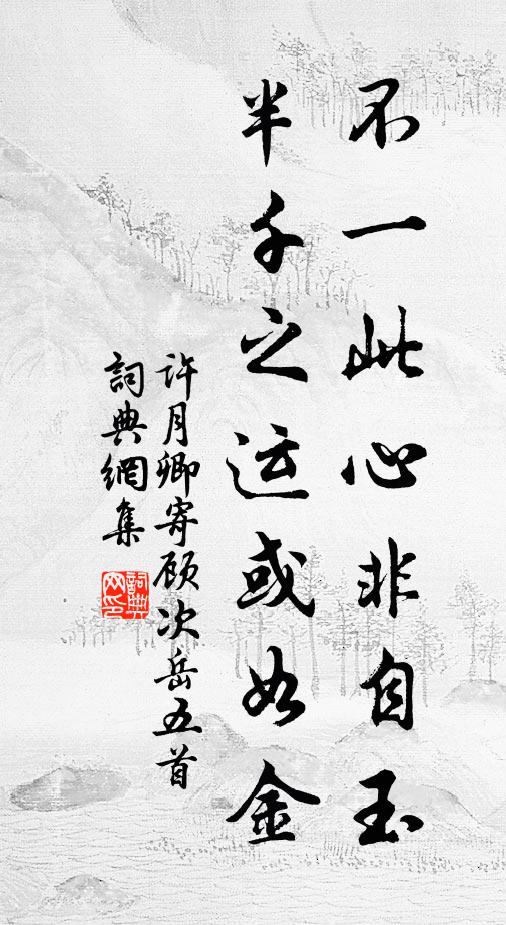 不一此心非自玉
半千之运或如金
许月卿寄顾次岳五首
詞典網集
詞典网印